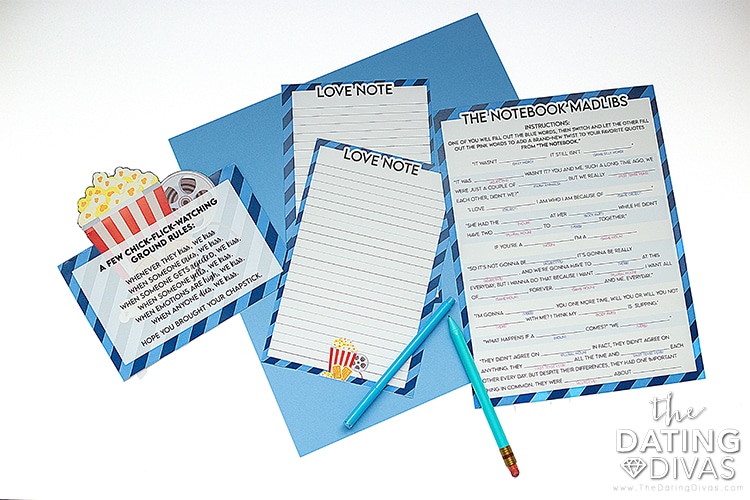 A FEW CHICK-FLICK-WATCHING
GROUND RULES:
WHENEVER THEY kiss, WE kiss
WHEN SOMEONE cries, WE kiss.
WHEN SOMEONE GETS rejected, WE kiss.
WHEN SOMEONE yells, WE kiss.
WHEN EMOTIONS ARE high, WE kiss.
WHEN ANYONE dies, WE kiss.
HOPE YOU BROUGHT YOUR CHAPSTICK.
LOVE NOTE
LOVE NOTE
THE NOTEBOOK MADLIBS
INSTRUCTIONS:
ONE OF YOU WILL FILL OUT THE BLUE WORDS, THEN SWITCH AND LET THE OTHER FILL
OUT THE PINK WORDS TO ADD A BRAND-NEW TWIST TO YOUR FAVORITE QUOTES
FROM "THE NOTEBOOK."
"IT WASN'T IT STILL ISN'T
"IT WAS WASN'T IT? YOU AND ME, SUCH A LONG TIME AGO, WE
WERE JUST A COUPLE OF BUT WE REALLY
EACH OTHER, DIDN'T WE?"
"I LOVE I AM WHO I AM BECAUSE OF
"SHE HAD THE AT HER WHILE HE DIDN'T
HAVE TWO TO TOGETHER."
IF YOU'RE A I'M A
"SO IT'S NOT GONNA BE IT'S GONNA BE REALLY
AND WE'RE GONNA HAVE TO AT THIS
EVERYDAY, BUT I WANNA DO THAT BECAUSE I WANT I WANT ALL
OF FOREVER AND ME. EVERYDAY."
"I'M GONNA YOU ONE MORE TIME, WILL YOU OR WILL YOU NOT
WITH ME? I THINK MY IS SLIPPING."
"WHAT HAPPENS IF A COMES?" "WE
"THEY DIDN'T AGREE ON IN FACT, THEY DIDN'T AGREE ON
ANYTHING. THEY ALL THE TIME AND EACH
OTHER EVERY DAY. BUT DESPITE THEIR DIFFERENCES, THEY HAD ONE IMPORTANT
THING IN COMMON, THEY WERE ABOUT
the
DATING
DIVAS
www.TheDatingDivas.com